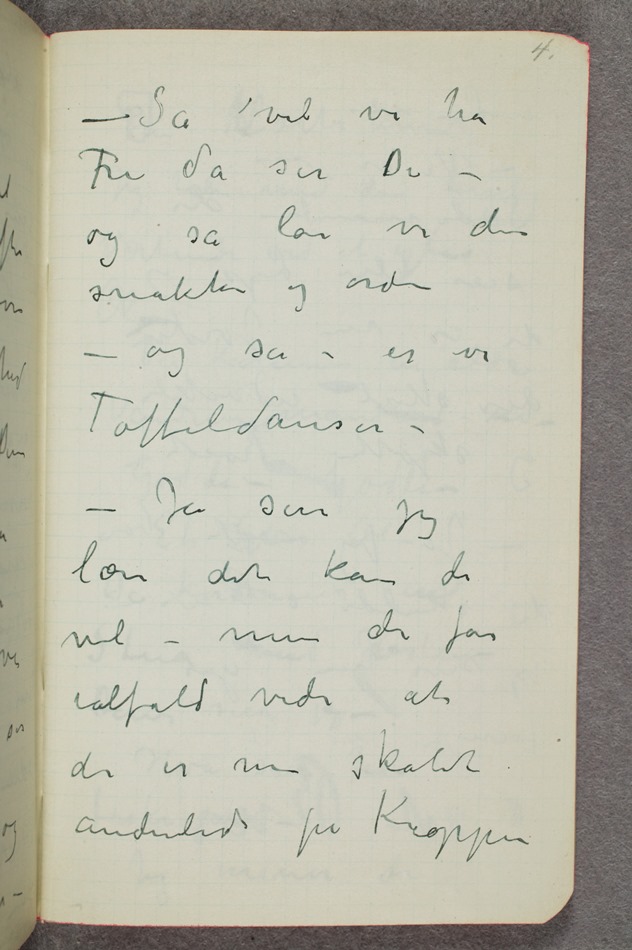 4.
– Så vil vi ha
Fri da ser De –
og så lar vi den
snakke og orden
– og så – er vi
Tøffeldanser –
– Ja san jeg
lær det kan de
vel – men de får
ialfald vide at
de er nu skabt
anderleds på Kroppen